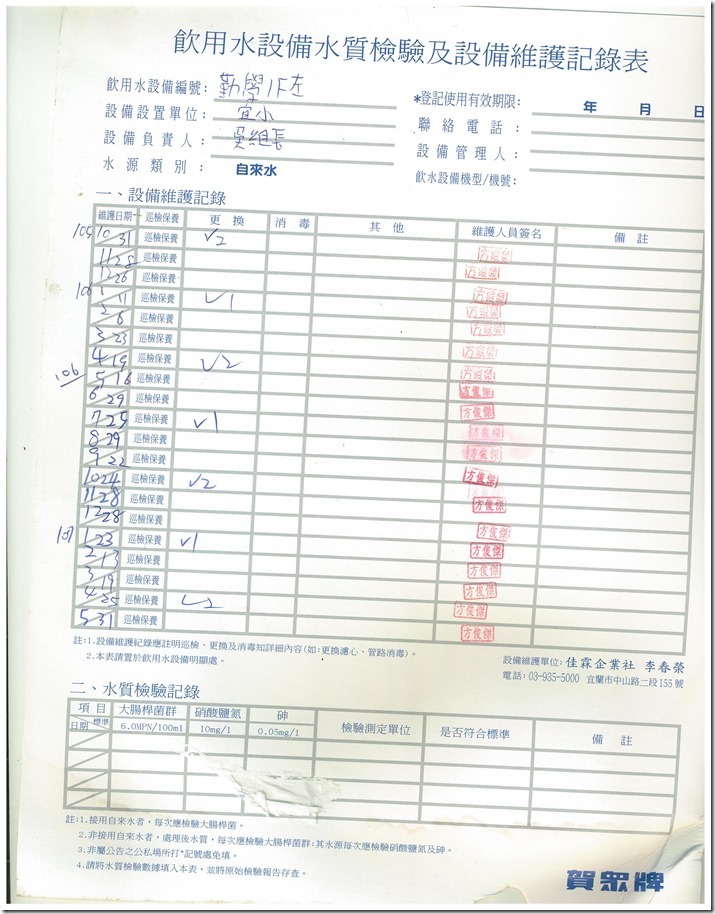 飲用水設備水質檢驗及設備維護記錄表
飲用水設備編號: 勤學1F左
*登記使用有效期限: 年 月 日
設備設置單位: 宜小
聯絡電話:
設備負責人: 吳組長
設備管理人:
水源類別: 自來水
飲水設備機型/機號:
一、設備維護記錄
維護日期 巡檢保養 更換 消毒 其他 維護人員簽名 備註
105 10/31 巡檢保養 ✓2 方俊傑
11/28 巡檢保養 方俊傑
12/26 巡檢保養 方俊傑
106 1/11 巡檢保養 ✓1 方俊傑
2/6 巡檢保養 方俊傑
3/23 巡檢保養 方俊傑
4/19 巡檢保養 ✓2 方俊傑
106 5/16 巡檢保養 方俊傑
6/29 巡檢保養 方俊傑
7/25 巡檢保養 ✓1 方俊傑
8/29 巡檢保養 方俊傑
9/22 巡檢保養 方俊傑
10/24 巡檢保養 ✓2 方俊傑
11/28 巡檢保養 方俊傑
12/28 巡檢保養
107 1/23 巡檢保養 ✓1 方俊傑
2/13 巡檢保養 方俊傑
3/19 巡檢保養 方俊傑
4/25 巡檢保養 ✓2 方俊傑
5/31 巡檢保養 方俊傑
註:1.設備維護紀錄應註明巡檢、更換及消毒知詳細內容(如:更換濾心、管路消毒)。
2.本表請置於飲用水設備明顯處。
設備維護單位: 佳霖企業社 李春榮
電話: 03-935-5000 宜蘭市中山路二段155號
二、水質檢驗記錄
項目 大腸桿菌群 硝酸鹽氮 砷 檢驗測定單位 是否符合標準 備註
日期 標準 6.0MPN/100ml 10mg/1 0.05mg/1
註:1.接用自來水者,每次應檢驗大腸桿菌。
2.非接用自來水者,處理後水質,每次應檢驗大腸桿菌群:其水源每次應檢驗硝酸鹽氮及砷。
3.非屬公告之公私場所打"記號處免填。
4.請將水質檢驗數據填入本表,並將原始檢驗報告存查。
賀眾牌